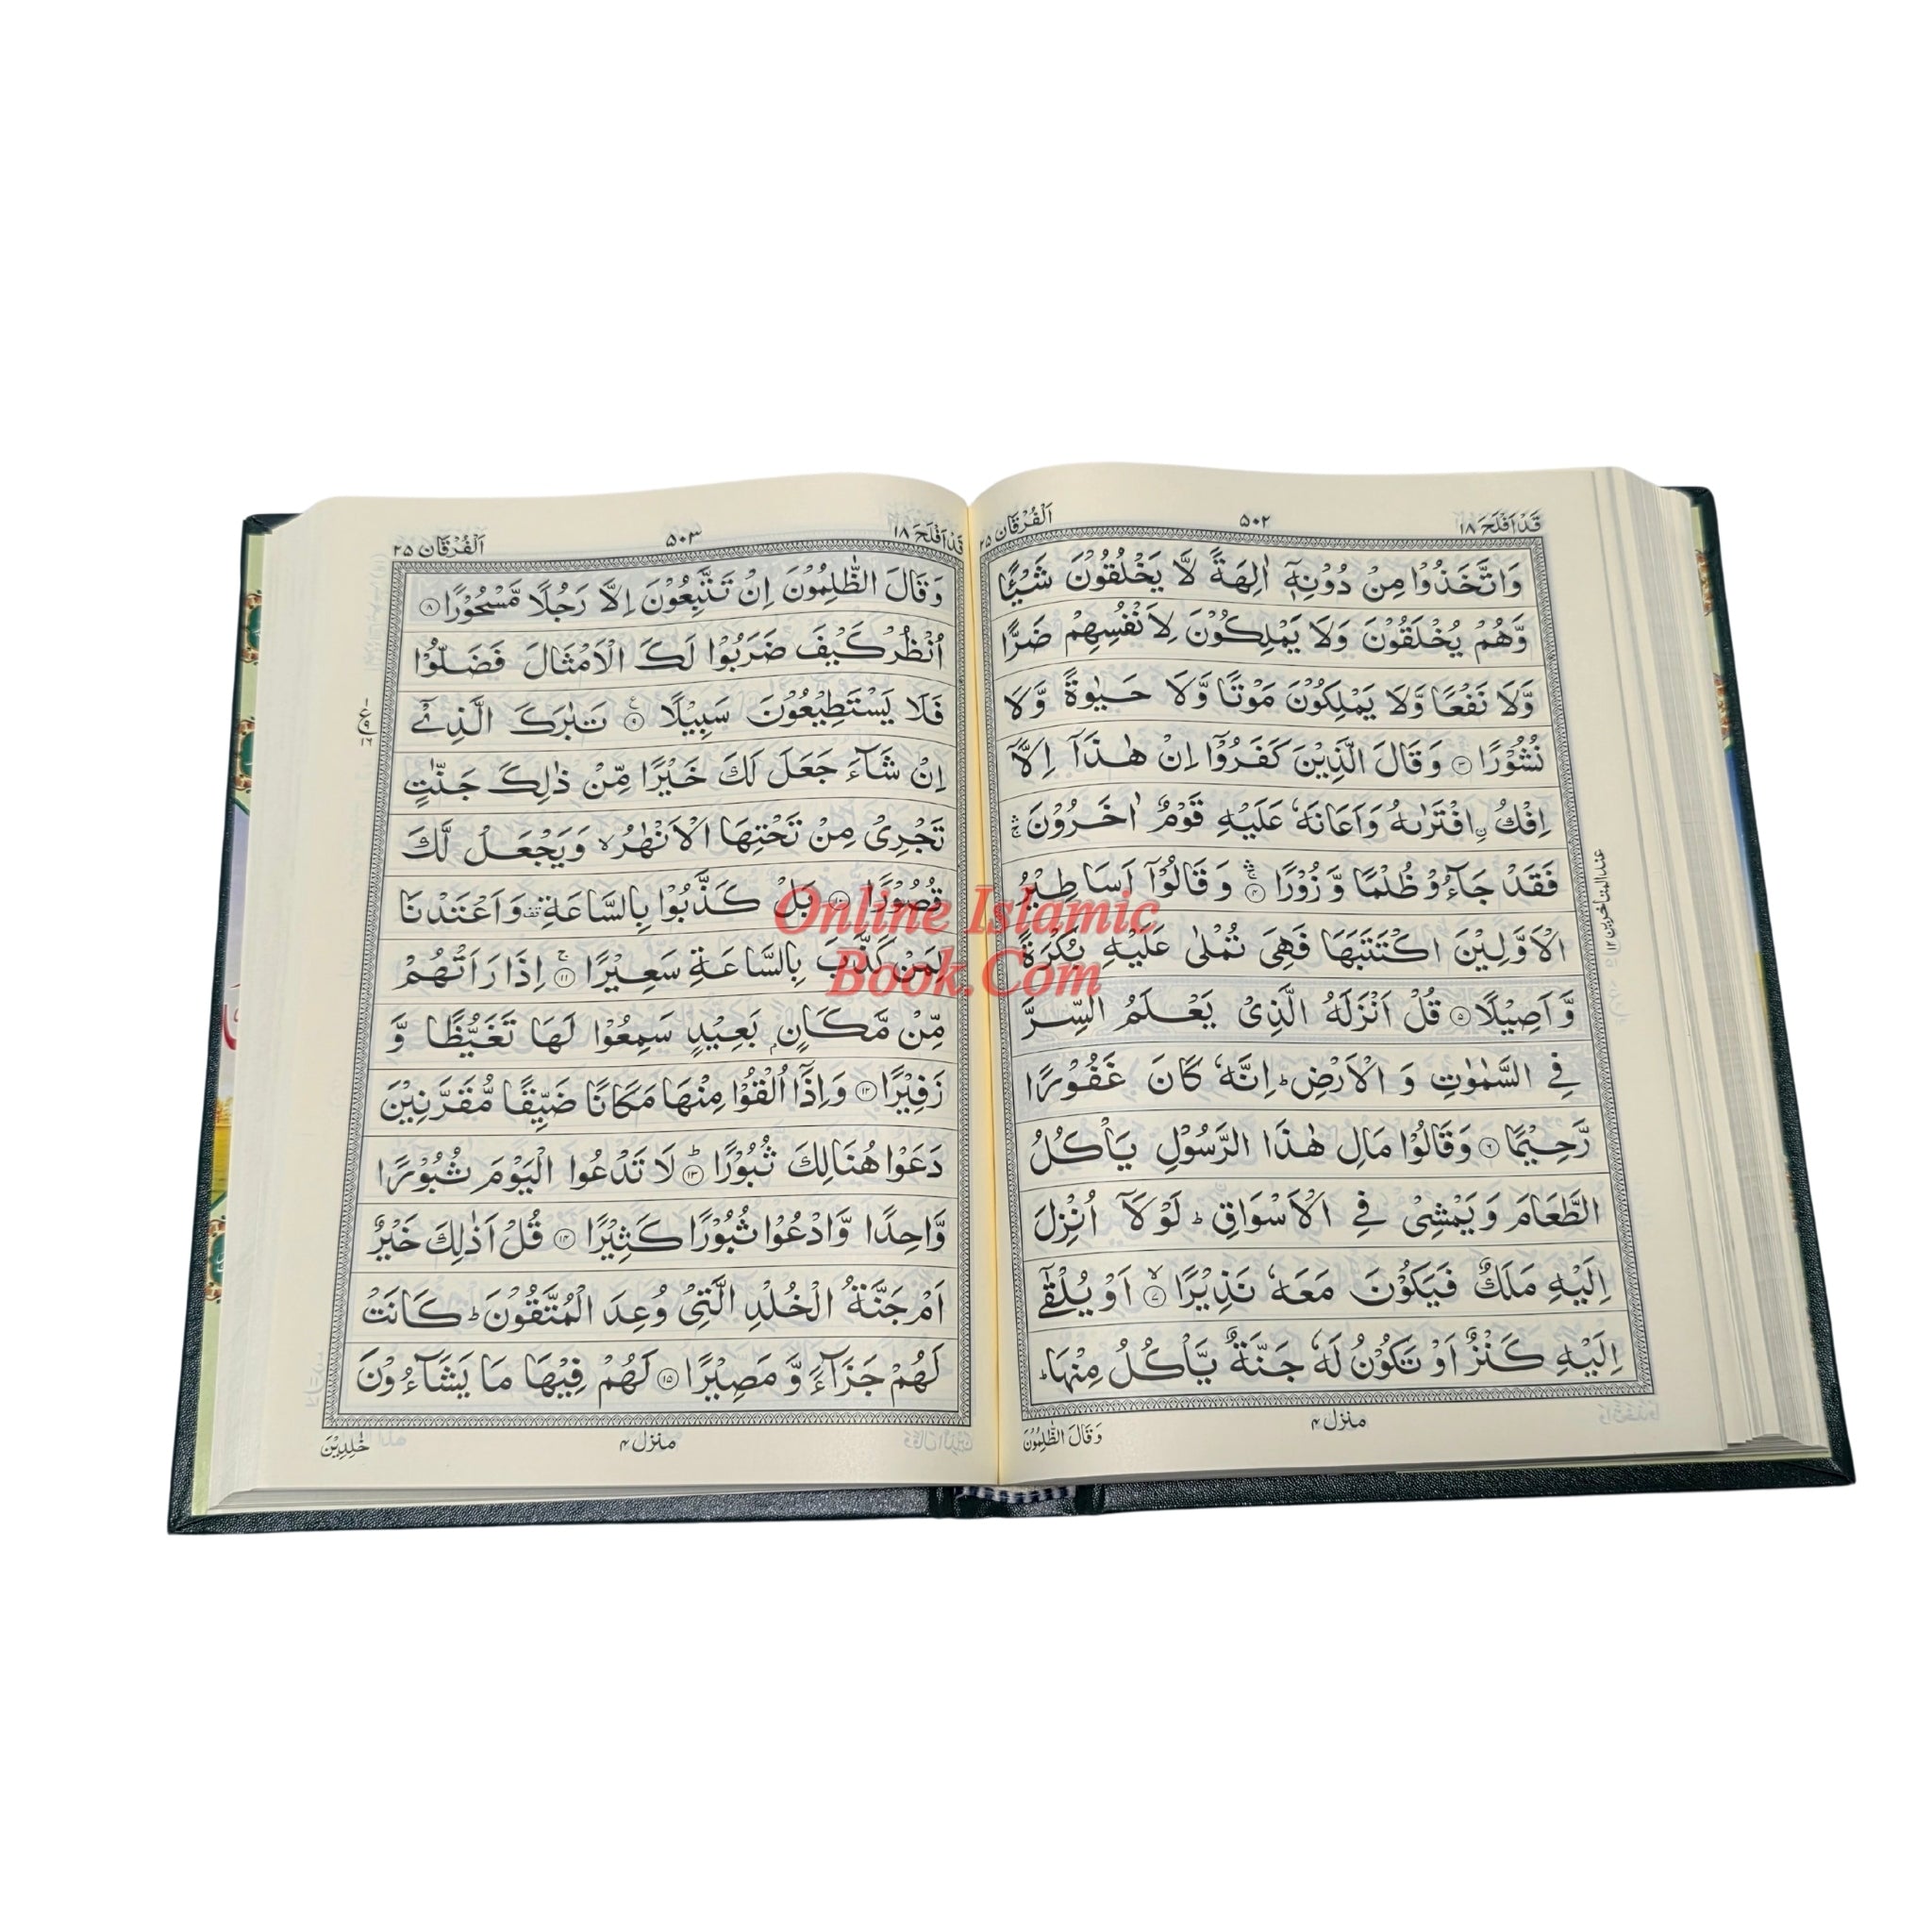 قَدْ اَفْلَحَ ١٨
٥٠٢
اَلْفُرْقَان ٢٥
وَاتَّخَذُوْا مِنْ دُوْنِهٖٓ اٰلِهَةً لَّا يَخْلُقُوْنَ شَيْـًٔا
وَّهُمْ يُخْلَقُوْنَ وَلَا يَمْلِكُوْنَ لِاَنْفُسِهِمْ ضَرًّا
وَّلَا نَفْعًا وَّلَا يَمْلِكُوْنَ مَوْتًا وَّلَا حَيٰوةً وَّلَا
نُشُوْرًا ٣ وَقَالَ الَّذِيْنَ كَفَرُوْٓا اِنْ هٰذَآ اِلَّآ
اِفْكُ ِۨافْتَرٰىهُ وَاَعَانَهٗ عَلَيْهِ قَوْمٌ اٰخَرُوْنَ ۛۚ
فَقَدْ جَآءُوْ ظُلْمًا وَّزُوْرًا ۛۚ ٤ وَقَالُوْٓا اَسَاطِيْرُ
الْاَوَّلِيْنَ اكْتَتَبَهَا فَهِىَ تُمْلٰى عَلَيْهِ بُكْرَةً
وَّاَصِيْلًا ٥ قُلْ اَنْزَلَهُ الَّذِىْ يَعْلَمُ السِّرَّ
فِى السَّمٰوٰتِ وَ الْاَرْضِ ؕ اِنَّهٗ كَانَ غَفُوْرًا
رَّحِيْمًا ٦ وَقَالُوْا مَالِ هٰذَا الرَّسُوْلِ يَاْكُلُ
الطَّعَامَ وَيَمْشِىْ فِى الْاَسْوَاقِ ؕ لَوْلَآ اُنْزِلَ
اِلَيْهِ مَلَكٌ فَيَكُوْنَ مَعَهٗ نَذِيْرًا ۙ ٧ اَوْ يُلْقٰٓى
اِلَيْهِ كَنْزٌ اَوْ تَكُوْنُ لَهٗ جَنَّةٌ يَّاْكُلُ مِنْهَا ؕ
عند المتاخرين ١٢
منزل ٤
وَقَالَ الظّٰلِمُوْنَ
قَدْ اَفْلَحَ ١٨
٥٠٣
اَلْفُرْقَان ٢٥
وَقَالَ الظّٰلِمُوْنَ اِنْ تَتَّبِعُوْنَ اِلَّا رَجُلًا مَّسْحُوْرًا ٨
اُنْظُرْ كَيْفَ ضَرَبُوْا لَكَ الْاَمْثَالَ فَضَلُّوْا
فَلَا يَسْتَطِيْعُوْنَ سَبِيْلًا ࣖ ٩ تَبٰرَكَ الَّذِىْٓ
اِنْ شَآءَ جَعَلَ لَكَ خَيْرًا مِّنْ ذٰلِكَ جَنّٰتٍ
تَجْرِىْ مِنْ تَحْتِهَا الْاَنْهٰرُ ۙ وَيَجْعَلْ لَّكَ
قُصُوْرًا ١٠ بَلْ كَذَّبُوْا بِالسَّاعَةِ قف وَاَعْتَدْنَا
لِمَنْ كَذَّبَ بِالسَّاعَةِ سَعِيْرًا ۚ ١١ اِذَا رَاَتْهُمْ
مِّنْ مَّكَانٍۭ بَعِيْدٍ سَمِعُوْا لَهَا تَغَيُّظًا وَّ
زَفِيْرًا ١٢ وَاِذَآ اُلْقُوْا مِنْهَا مَكَانًا ضَيِّقًا مُّقَرَّنِيْنَ
دَعَوْا هُنَالِكَ ثُبُوْرًا ؕ ١٣ لَا تَدْعُوا الْيَوْمَ ثُبُوْرًا
وَّاحِدًا وَّادْعُوْا ثُبُوْرًا كَثِيْرًا ١٤ قُلْ اَذٰلِكَ خَيْرٌ
اَمْ جَنَّةُ الْخُلْدِ الَّتِىْ وُعِدَ الْمُتَّقُوْنَ ؕ كَانَتْ
لَهُمْ جَزَآءً وَّ مَصِيْرًا ١٥ لَهُمْ فِيْهَا مَا يَشَآءُوْنَ
منزل ٤
خٰلِدِيْنَ
Online Islamic
Book.Com